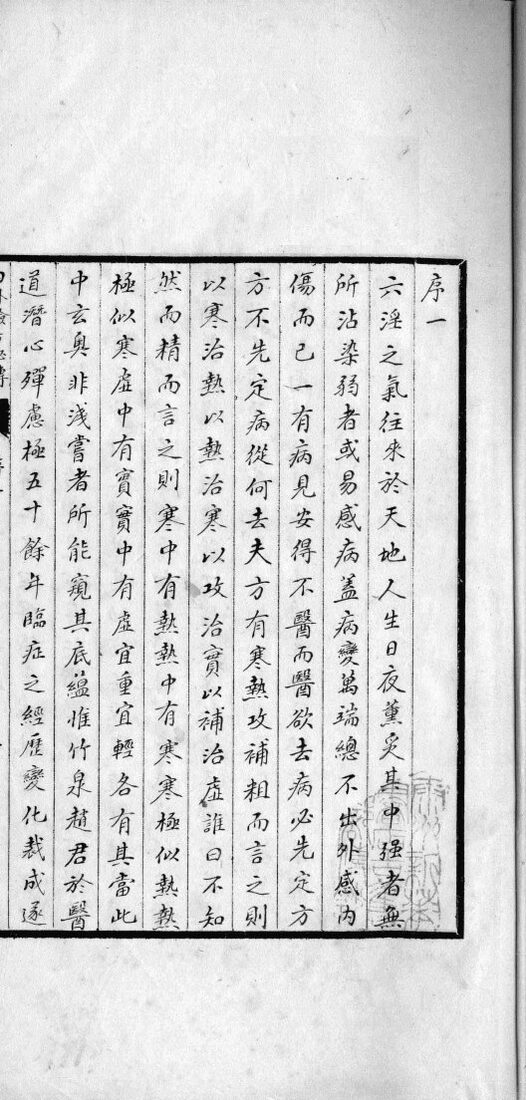 序一
六淫之氣往來於天地人生日夜薰炙其中强者無
所沾染弱者或易感病蓋病變萬瑞總不出外感內
傷而已一有病見安得不醫而醫欲去病必先定方
方不先定病從何去夫方有寒熱攻補粗而言之則
以寒治熱以熱治寒以攻治實以補治虛誰曰不知
然而精而言之則寒中有熱熱中有寒寒極似熱熱
極似寒虛中有實實中有虛宜重宜輕各有其當此
中玄奥非浅嘗者所能窺其底蕴惟竹泉趙君於醫
道潛心殫慮極五十餘年臨症之經歷變化裁成遂